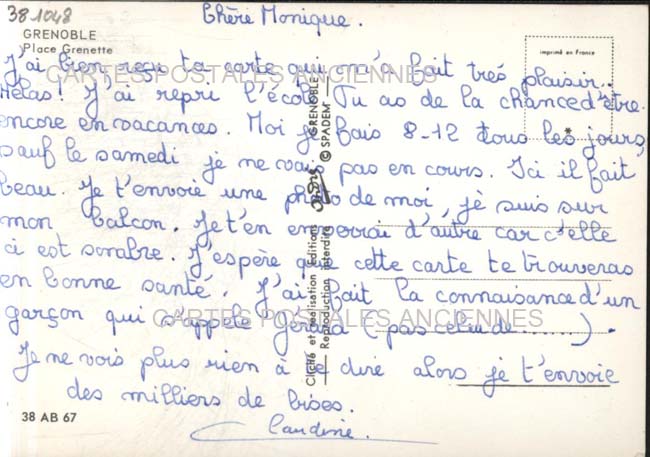 38.1048
Chère Monique.
GRENOBLE
Place Grenette
imprimé en France
J'ai bien reçu ta carte qui m'a fait très plaisir..
Helas! J'ai repri l'école. Tu as de la chance d'être
encore en vacances. Moi je fais 8-12 tous les jours,
sauf le samedi je ne vais pas en cours. Ici il fait
beau. Je t'envoie une photo de moi, je suis sur
mon balcon. Je t'en enverrai d'autre car c'elle
ci est sombre. J'espère que cette carte te trouveras
en bonne santé. J'ai fait la connaisance d'un
garçon qui s'appele Gérald (pas celui de .......).
Je ne vois plus rien à te dire alors je t'envoie
des milliers de bises.
Claudine.
38 AB 67
Cliché et Réalisation Editions GRENOBLE
Reproduction interdite © SPADEM
CARTES POSTALES ANCIENNES
CARTES POSTALES ANCIENNES